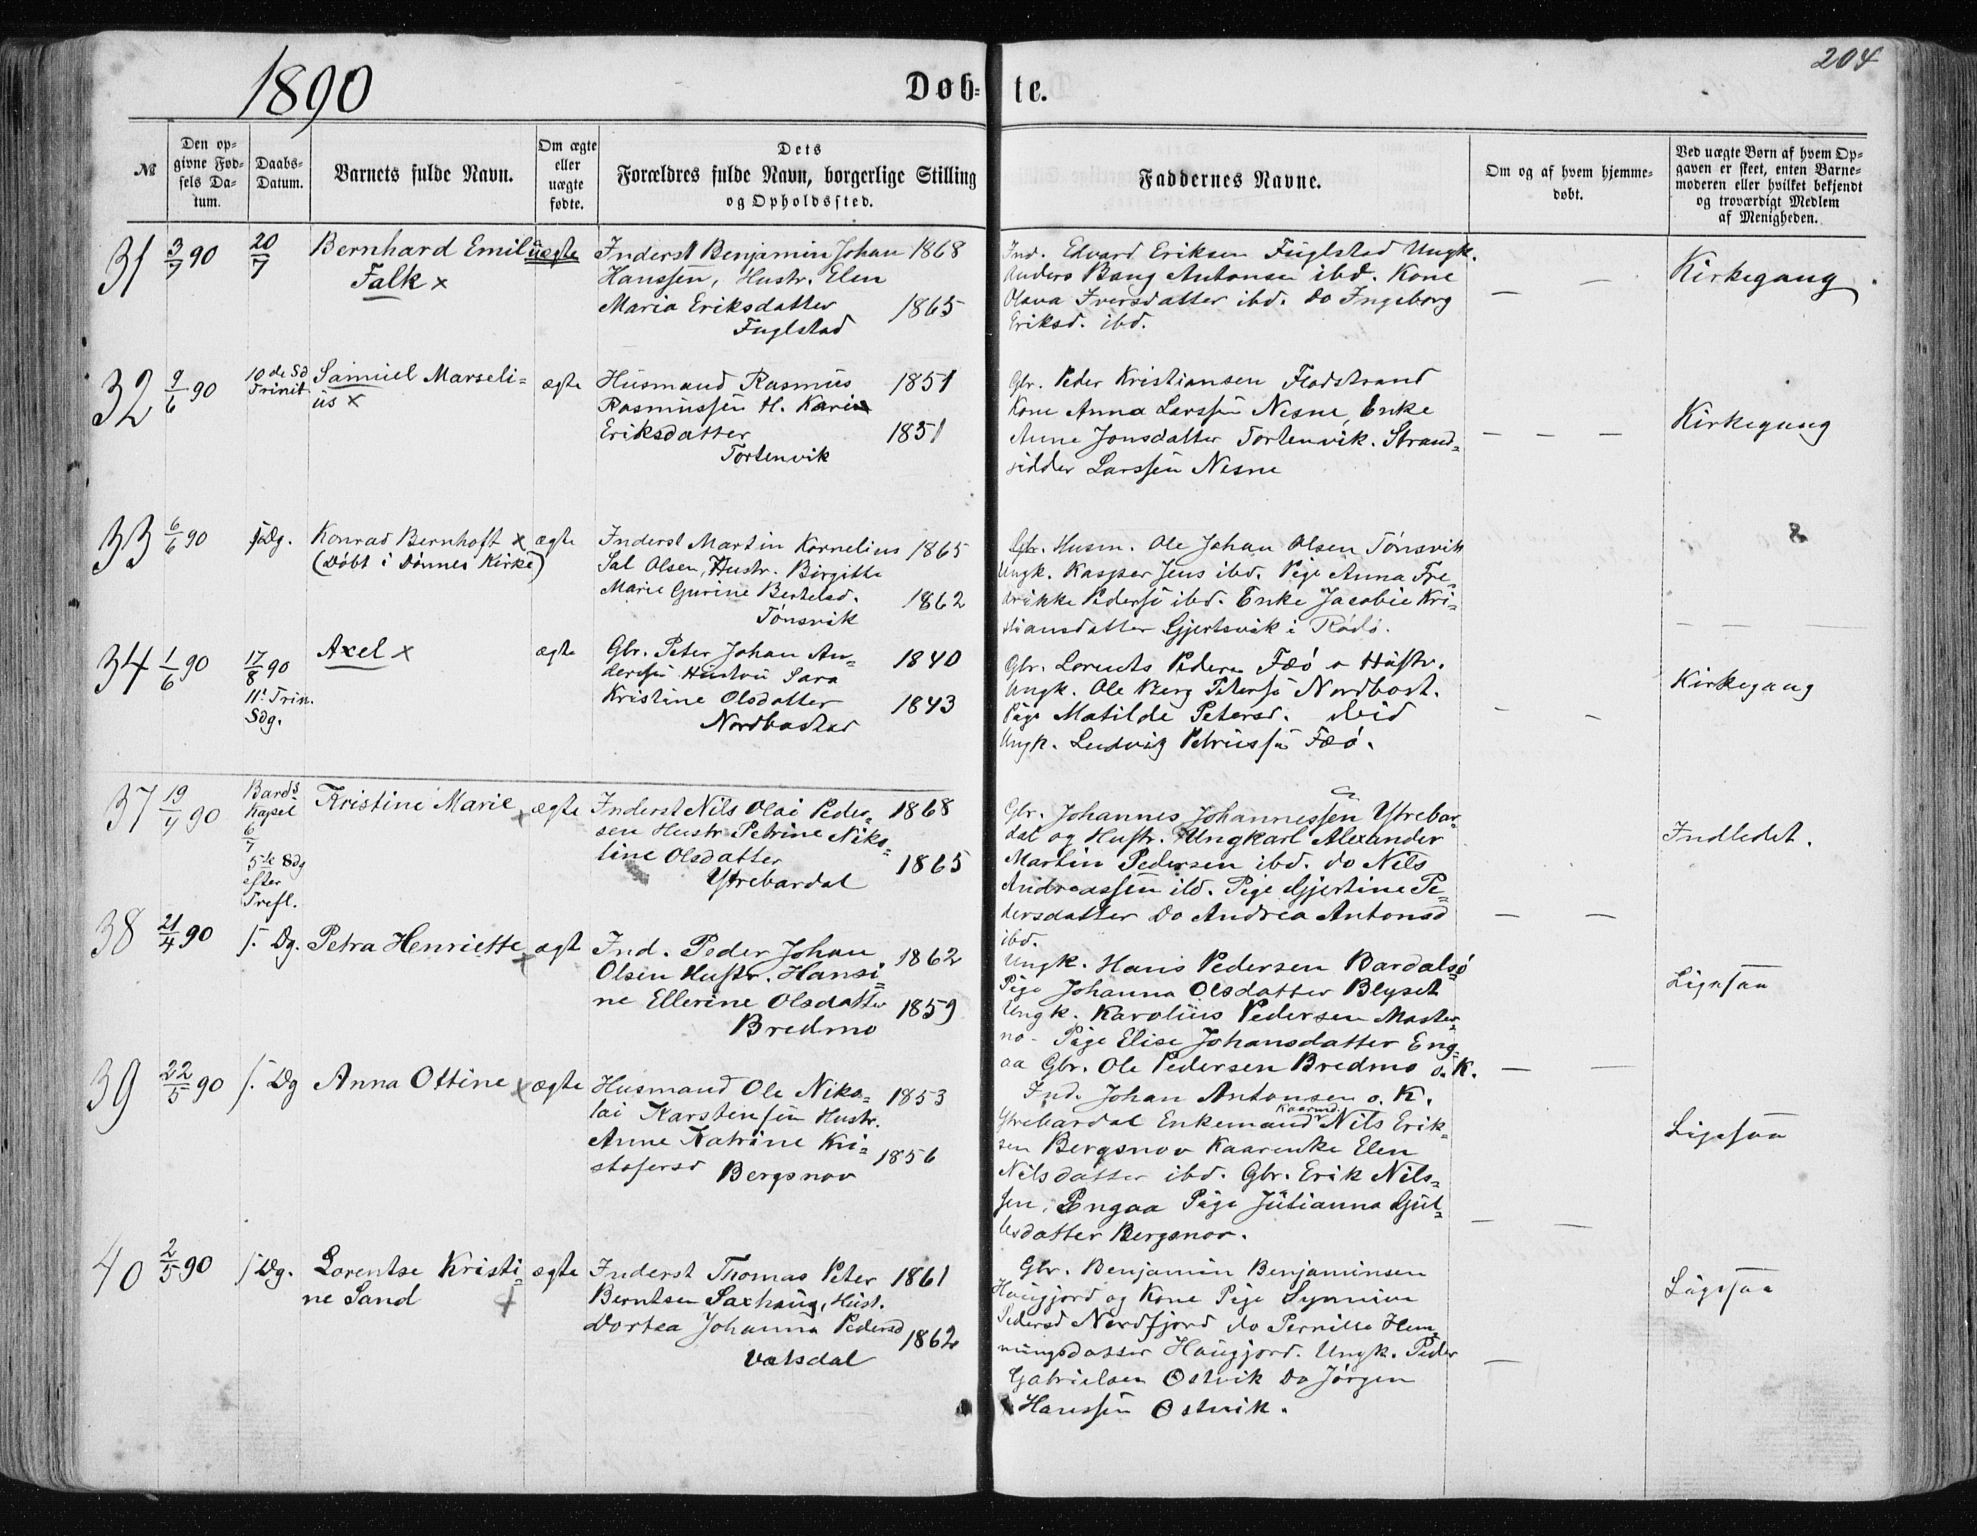 1890
Døb-
te.
204
№
Den op-
givne Fød-
sels Da-
tum.
Daabs-
Datum.
Barnets fulde Navn.
Om ægte
eller
uægte
fødte.
Dets
Forældres fulde Navn, borgerlige Stilling
og Opholdssted.
Faddernes Navne.
Om og af hvem hjemme-
døbt.
Ved uægte Børn af hvem Op-
gaven er skeet, enten Barne-
moderen eller hvilket bekjendt
og troværdigt Medlem
af Menigheden.
31
3/7 90
20/7
Bernhard Emil
Falk x
uægte
Inderst Benjamin Johan 1868
Hanssen, Hustr. Elen
Maria Eriksdatter 1865
Fuglstad
Ind. Edvard Eriksen Fuglstad Ungk.
Anders Bang Antonsen ibd. Kone
Olava Iversdatter ibd. do Ingeborg
Eriksd. ibd.
— —
Kirkegang
32
9/6 90
10de Sd
Trinit
Samuel Marseli=
us x
ægte
Husmand Rasmus 1851
Rasmussen H. Karin
Eriksdatter 1851
Tortenvik
Gbr. Peder Kristiansen Flodstrand
Kone Anna Larssen Nesne, Enke
Anne Jonsdatter Tortenvik. Strand=
sidder Larssen Nesne
— — —
Kirkegang
33
6/6 90
s. Dg.
Konrad Bernhoft x
(Døbt i Dønnes Kirke)
ægte
Inderst Martin Kornelius 1865
Sal Olsen, Hustr. Birgitte
Marie Gurine Bertelsd. 1862
Tønsvik
Gbr. Husm. Ole Johan Olsen Tønsvik
Ungk. Kasper Jens ibd. Pige Anna Fre=
drikke Peders. ibd. Enke Jacobie Kri=
stiansdatter Gjertsvik i Rødø.
— — —
34
1/6 90
17/8 90
11te Trin.
Sdg.
Axel x
ægte
Gbr. Peter Johan An= 1840
derssen Hustru Sara
Kristine Olsdatter 1843
Nordbostad
Gbr. Lorents Peders. Fæø o Hustr.
Ungk. Ole Berg Peters. Nordbost.
Pige Matilde Petersd. ibid
Ungk. Ludvig Petrussen Fæø.
— —
Kirkegang
37
19/4 90
Bards
Kapel
6/7
5te Sdg
efter
Trefl.
Kristine Marie x
ægte
Inderst Nils Olai Peder= 1868
sen Hustr Petrine Niko=
line Olsdatter 1865
Ytrebardal
Gbr. Johannes Johannessen Ytrebar=
dal og Hustr. Ungkarl Alexander
Martin Pedersen ibd. do Nils
Andreassen ibd. Pige Gjertine Pe=
dersdatter Do Andrea Antonsd
ibd.
— —
Indledet.
38
21/4 90
s. Dg.
Petra Henriette x
ægt
Ind. Peder Johan 1862
Olsen Hustr. Hansi=
ne Ellerine Olsdatter 1859
Bredmo
Ungk. Hans Pedersen Bardalsø
Pige Johanna Olsdatter Blyset
Ungk. Karolius Pedersen Master=
no. Pige Elise Johansdatter Eng=
aa Gbr. Ole Pedersen Bredmo o. K.
— —
Ligesaa
39
22/5 90
s. Dg
Anna Ottine x
ægte
Husmand Ole Niko= 1853
lai Karstensen Hustr.
Anne Katrine Kri= 1856
stofersd Bergsnov
Ind. Johan Antonsen o. K.
Ytrebardal Enkemand Kaarmd. Nils Erik=
sen Bergsnov Kaarenke Elen
Nilsdatter ibd. Gbr. Erik Nils=
sen, Engaa Pige Julianna Gjul=
lesdatter Bergsnov.
— —
Ligesaa
40
2/5 90
s. Dg.
Lorentse Kristi=
ne Sand x
ægte
Inderst Thomas Peter 1861
Berntsen Saxhaug, Hust.
Dortea Johanna Pedersd 1862
Valsdal
Gbr. Benjamin Benjaminsen
Haugjord og Kone Pige Synnive
Pedersd Nordfjord do Pernille Hen=
ningsdatter Haugjord. Ungk. Peder
Gabrielsen Ostvik Do Jørgen
Hanssen Ostvik.
—
Ligesaa